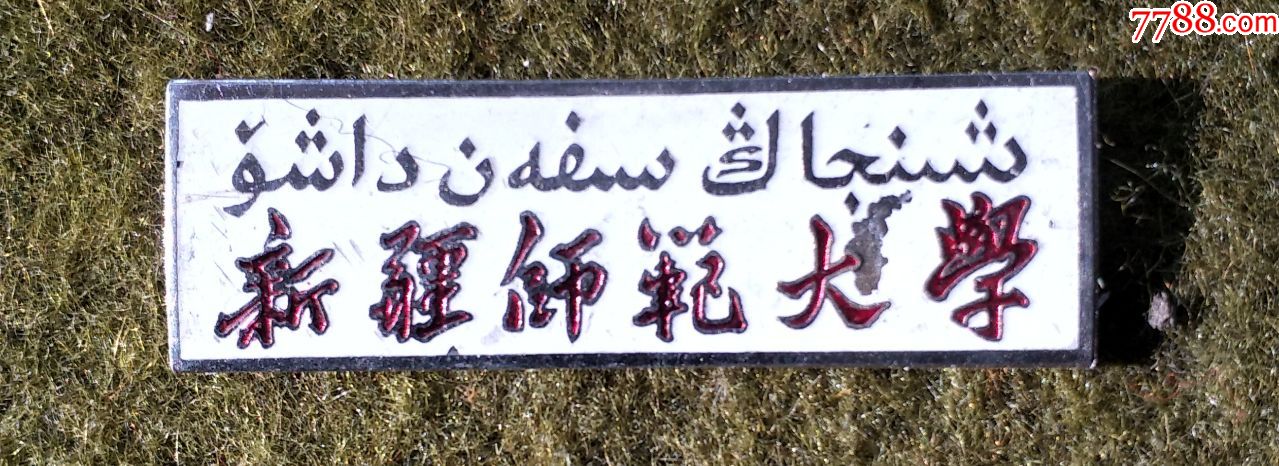 7788.com
شىنجاڭ سىفەن داشۆ
新疆師範大學